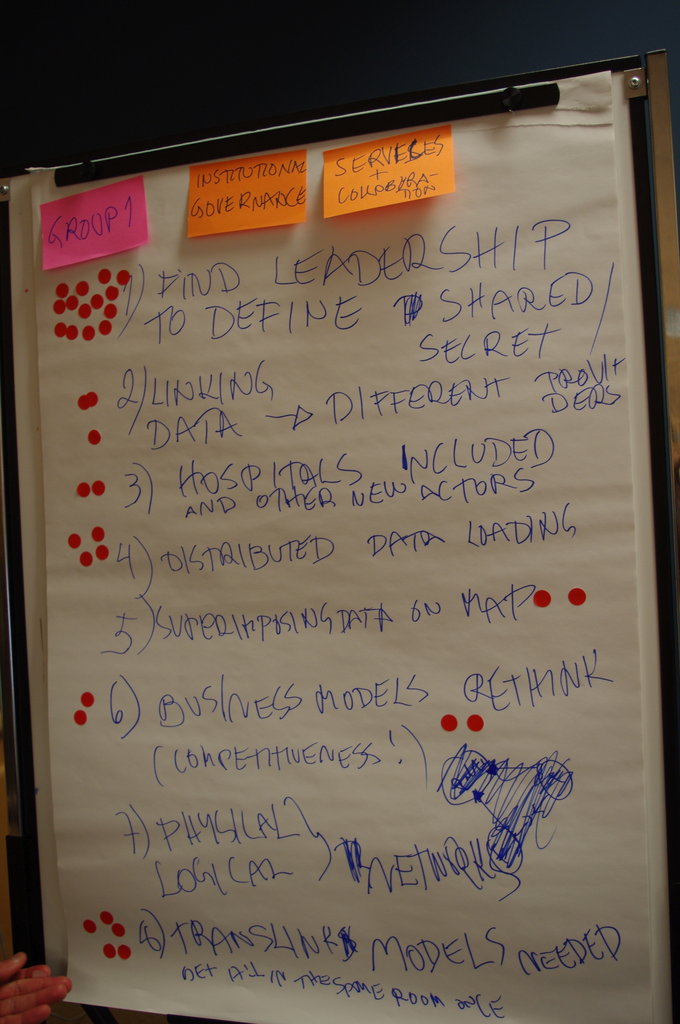 GROUP 1
INSTITUTIONAL
GOVERNANCE
SERVICES
+
COLLABORA-
TION
1) FIND LEADERSHIP
TO DEFINE SHARED/
SECRET
2) LINKING
DATA → DIFFERENT PROVI
DERS
3) HOSPITALS INCLUDED
AND OTHER NEW ACTORS
4) DISTRIBUTED DATA LOADING
5) SUPERIMPOSING DATA ON MAP
6) BUSINESS MODELS RETHINK
(COMPETITIVENESS!)
7) PHYSICAL }
LOGICAL } NETWORKS
8) TRANSLINK MODELS NEEDED
GET ALL IN THE SAME ROOM ONCE